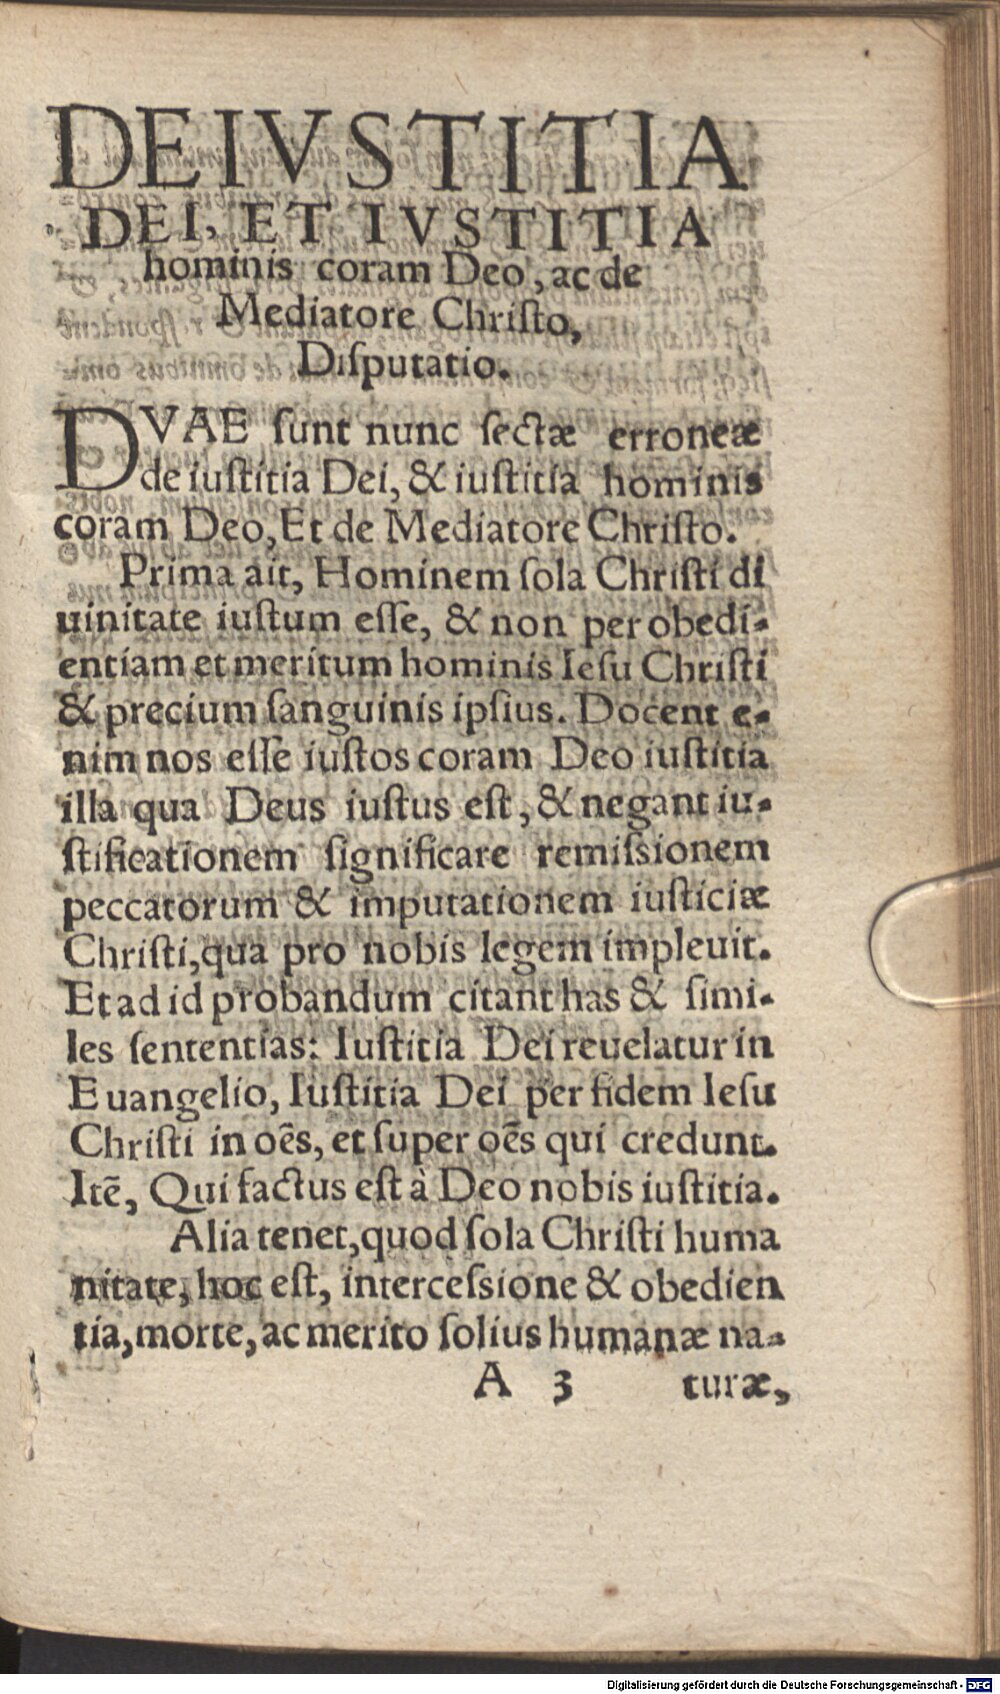 DE IVSTITIA
DEI, ET IVSTITIA
hominis coram Deo, ac de
Mediatore Chriſto,
Diſputatio.
DVAE ſunt nunc ſectæ erroneæ
de iuſtitia Dei, & iuſtitia hominis
coram Deo, Et de Mediatore Chriſto.
Prima ait, Hominem ſola Chriſti di
uinitate iuſtum eſſe, & non per obedi-
entiam et meritum hominis Ieſu Chriſti
& precium ſanguinis ipſius. Docent e-
nim nos eſſe iuſtos coram Deo iuſtitia
illa qua Deus iuſtus eſt, & negant iu-
ſtificationem ſignificare remiſsionem
peccatorum & imputationem iuſticiæ
Chriſti, qua pro nobis legem impleuit.
Et ad id probandum citant has & ſimi-
les ſententias: Iuſtitia Dei reuelatur in
Euangelio, Iuſtitia Dei per fidem Ieſu
Chriſti in oẽs, et ſuper oẽs qui credunt.
Itẽ, Qui factus eſt à Deo nobis iuſtitia.
Alia tenet, quod ſola Chriſti huma
nitate, hoc eſt, interceſsione & obedien
tia, morte, ac merito ſolius humanæ na-
A 3 turæ,
Digitalisierung gefördert durch die Deutsche Forschungsgemeinschaft - DFG